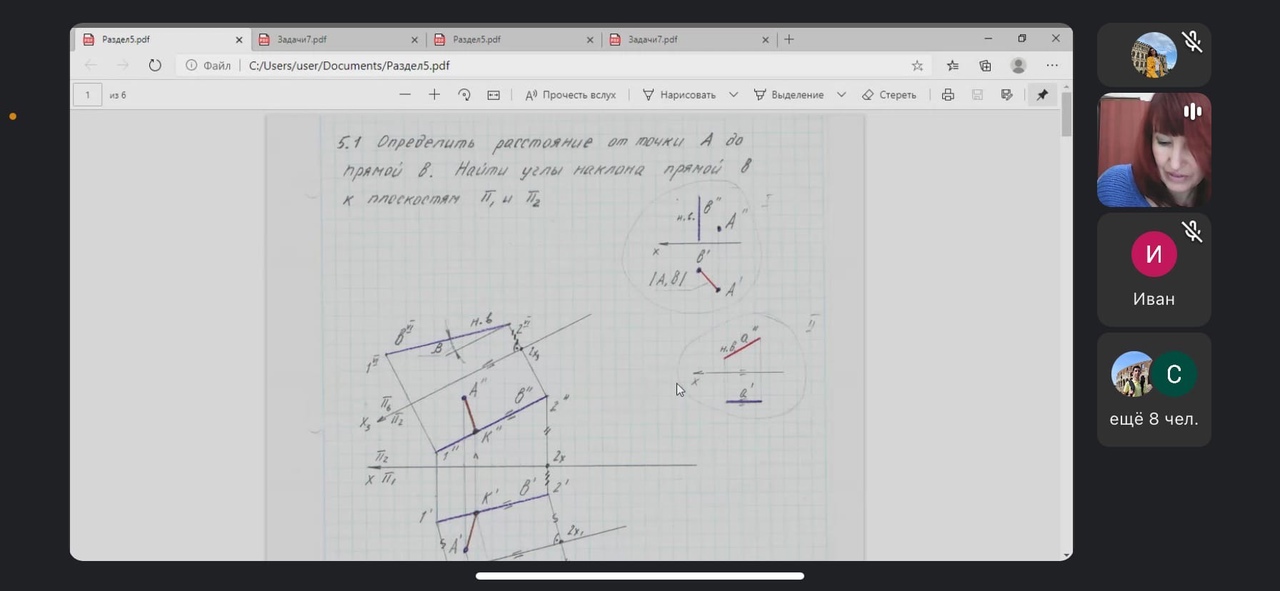 Раздел5.pdf
Задачи7.pdf
Раздел5.pdf
Задачи7.pdf
Файл
C:/Users/user/Documents/Раздел5.pdf
1
из 6
Прочесть вслух
Нарисовать
Выделение
Стереть
5.1 Определить расстояние от точки А до
прямой в. Найти углы наклона прямой в
к плоскостям П₁ и П₂
I
н.в.
в"
А"
x
в'
|А,В|
А'
II
н.в
а"
x
а'
н.в
β
А"
в"
2"
К"
1"
П₂
x П₁
2x
К'
в'
2'
1'
А'
2x₁
И
Иван
С
ещё 8 чел.